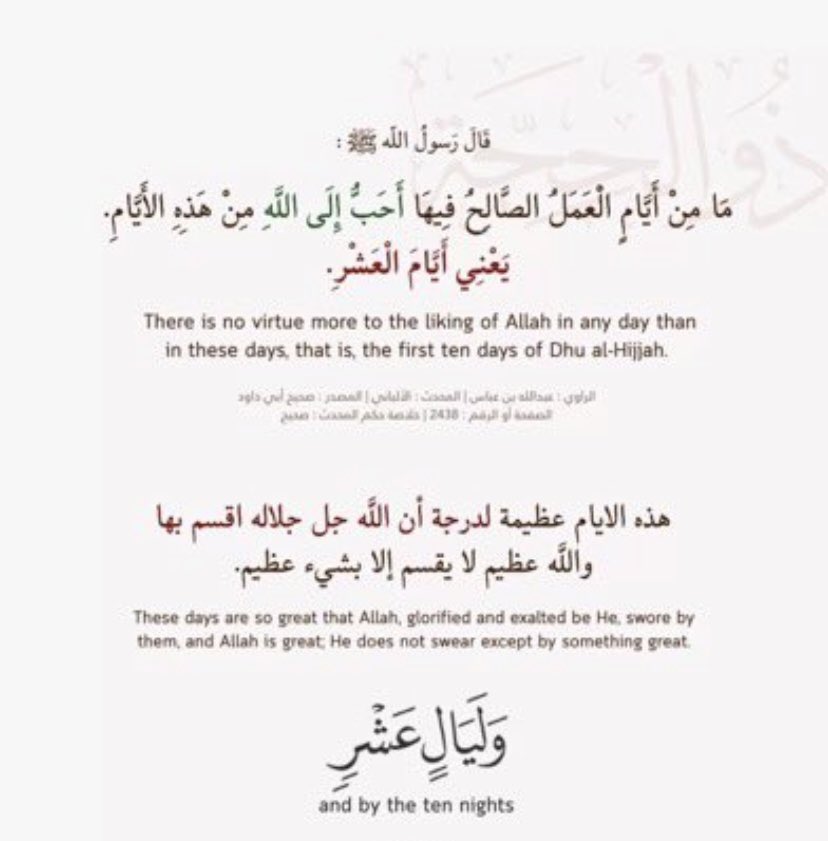 ذُو الْحِجَّة
قَالَ رَسولُ اللّٰه ﷺ :
مَا مِنْ أَيَّامٍ الْعَمَلُ الصَّالِحُ فِيهَا أَحَبُّ إِلَى اللَّهِ مِنْ هَذِهِ الأَيَّامِ.
يَعْنِي أَيَّامَ الْعَشْرِ.
There is no virtue more to the liking of Allah in any day than
in these days, that is, the first ten days of Dhu al-Hijjah.
الراوي : عبدالله بن عباس | المحدث : الألباني | المصدر : صحيح أبي داود
الصفحة أو الرقم : 2438 | خلاصة حكم المحدث : صحيح
هذه الايام عظيمة لدرجة أن اللَّه جل جلاله اقسم بها
واللَّه عظيم لا يقسم إلا بشيء عظيم.
These days are so great that Allah, glorified and exalted be He, swore by
them, and Allah is great; He does not swear except by something great.
وَلَيَالٍ عَشْرٍ
and by the ten nights